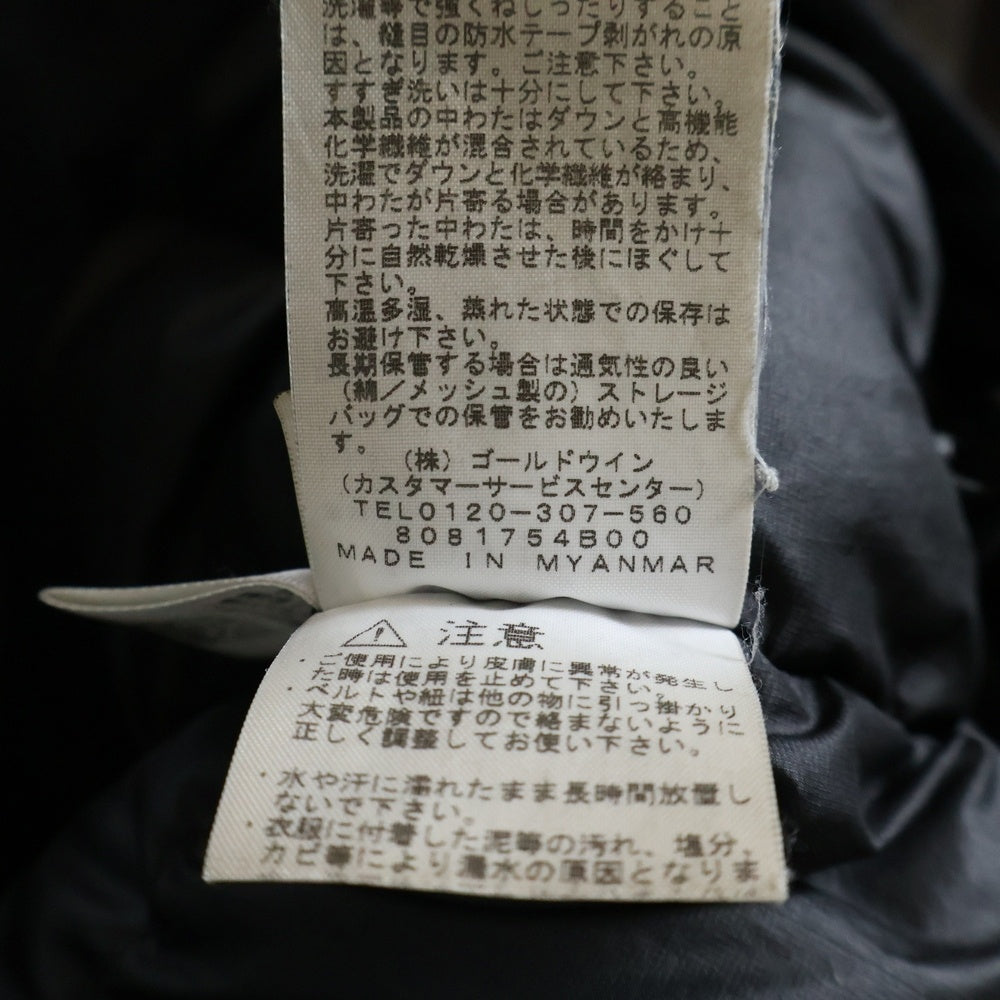 洗濯等で強くねじったりすること
は、縫目の防水テープ剥がれの原
因となります。ご注意下さい。
すすぎ洗いは十分にして下さい。
本製品の中わたはダウンと高機能
化学繊維が混合されているため、
洗濯でダウンと化学繊維が絡まり、
中わたが片寄る場合があります。
片寄った中わたは、時間をかけ十
分に自然乾燥させた後にほぐして
下さい。
高温多湿、蒸れた状態での保存は
お避け下さい。
長期保管する場合は通気性の良い
(綿/メッシュ製の)ストレージ
バッグでの保管をお勧めいたしま
す。
(株)ゴールドウイン
(カスタマーサービスセンター)
TEL0120-307-560
8081754B00
MADE IN MYANMAR
⚠ 注意
・ご使用により皮膚に異常が発生し
た時は使用を止めて下さい。
・ベルトや紐は他の物に引っ掛かり
大変危険ですので絡まないように
正しく調整してお使い下さい。
・水や汗に濡れたまま長時間放置し
ないで下さい。
・衣服に付着した泥等の汚れ、塩分、
カビ等により漏水の原因となりま